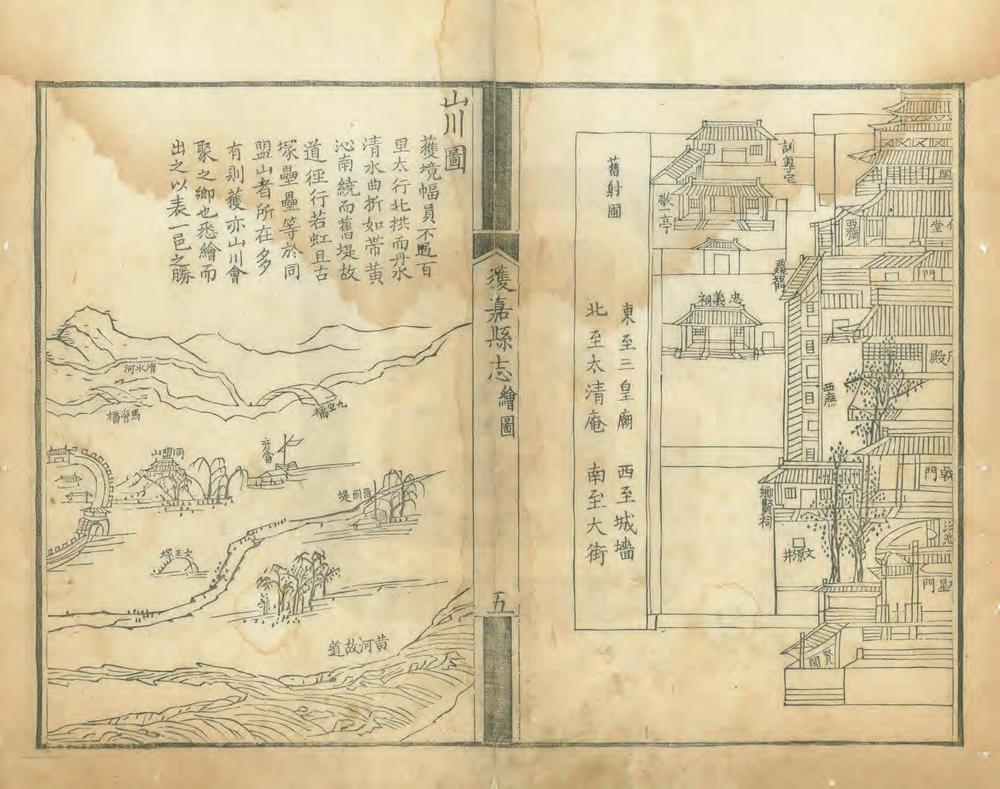 訓導宅
舊射圃
敬一亭
忠義祠
東至三皇廟　西至城墻
北至太清庵　南至大街
西廡
鄉賢祠
文源井
賢關
門
堂
殿
門
門
獲嘉縣志
繪圖
五
山川圖
獲境幅員不過百
里太行北拱而丹水
清水曲折如帶黃
沁南繞而舊堤故
道徑行若虹且古
塚壘壘等於同
盟山者所在多
有則獲亦山川會
聚之鄉也悉繪而
出之以表一邑之勝
清水河
九里橋
馬營橋
同盟山
舊圈堤
文王塚
黃河故道